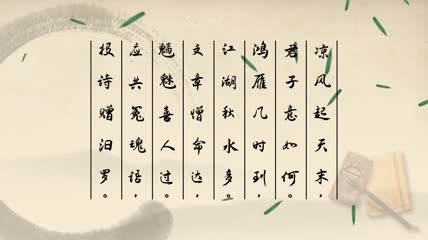 凉风起天末，
君子意如何。
鸿雁几时到，
江湖秋水多。
文章憎命达，
魑魅喜人过。
应共冤魂语，
投诗赠汨罗。